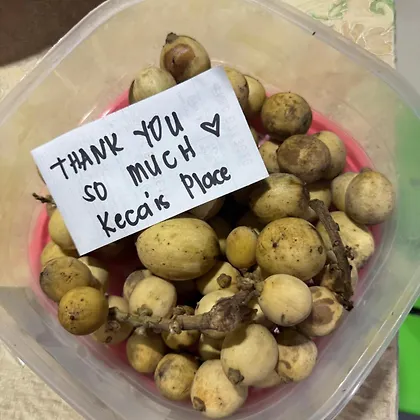 THANK YOU
SO MUCH ♡
Keca's Place